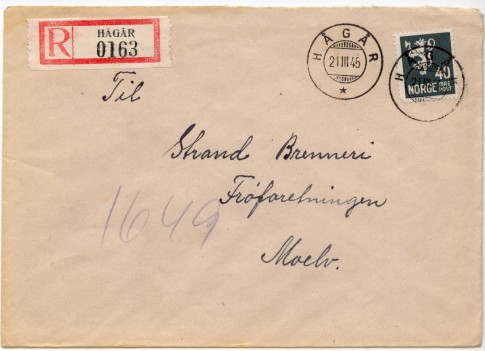 R HÅGÅR
0163
HÅGÅR
21 III 45
40
NORGE ØRE
POST
Til
Strand Brenneri
Frøforetningen
Moelv.
1649